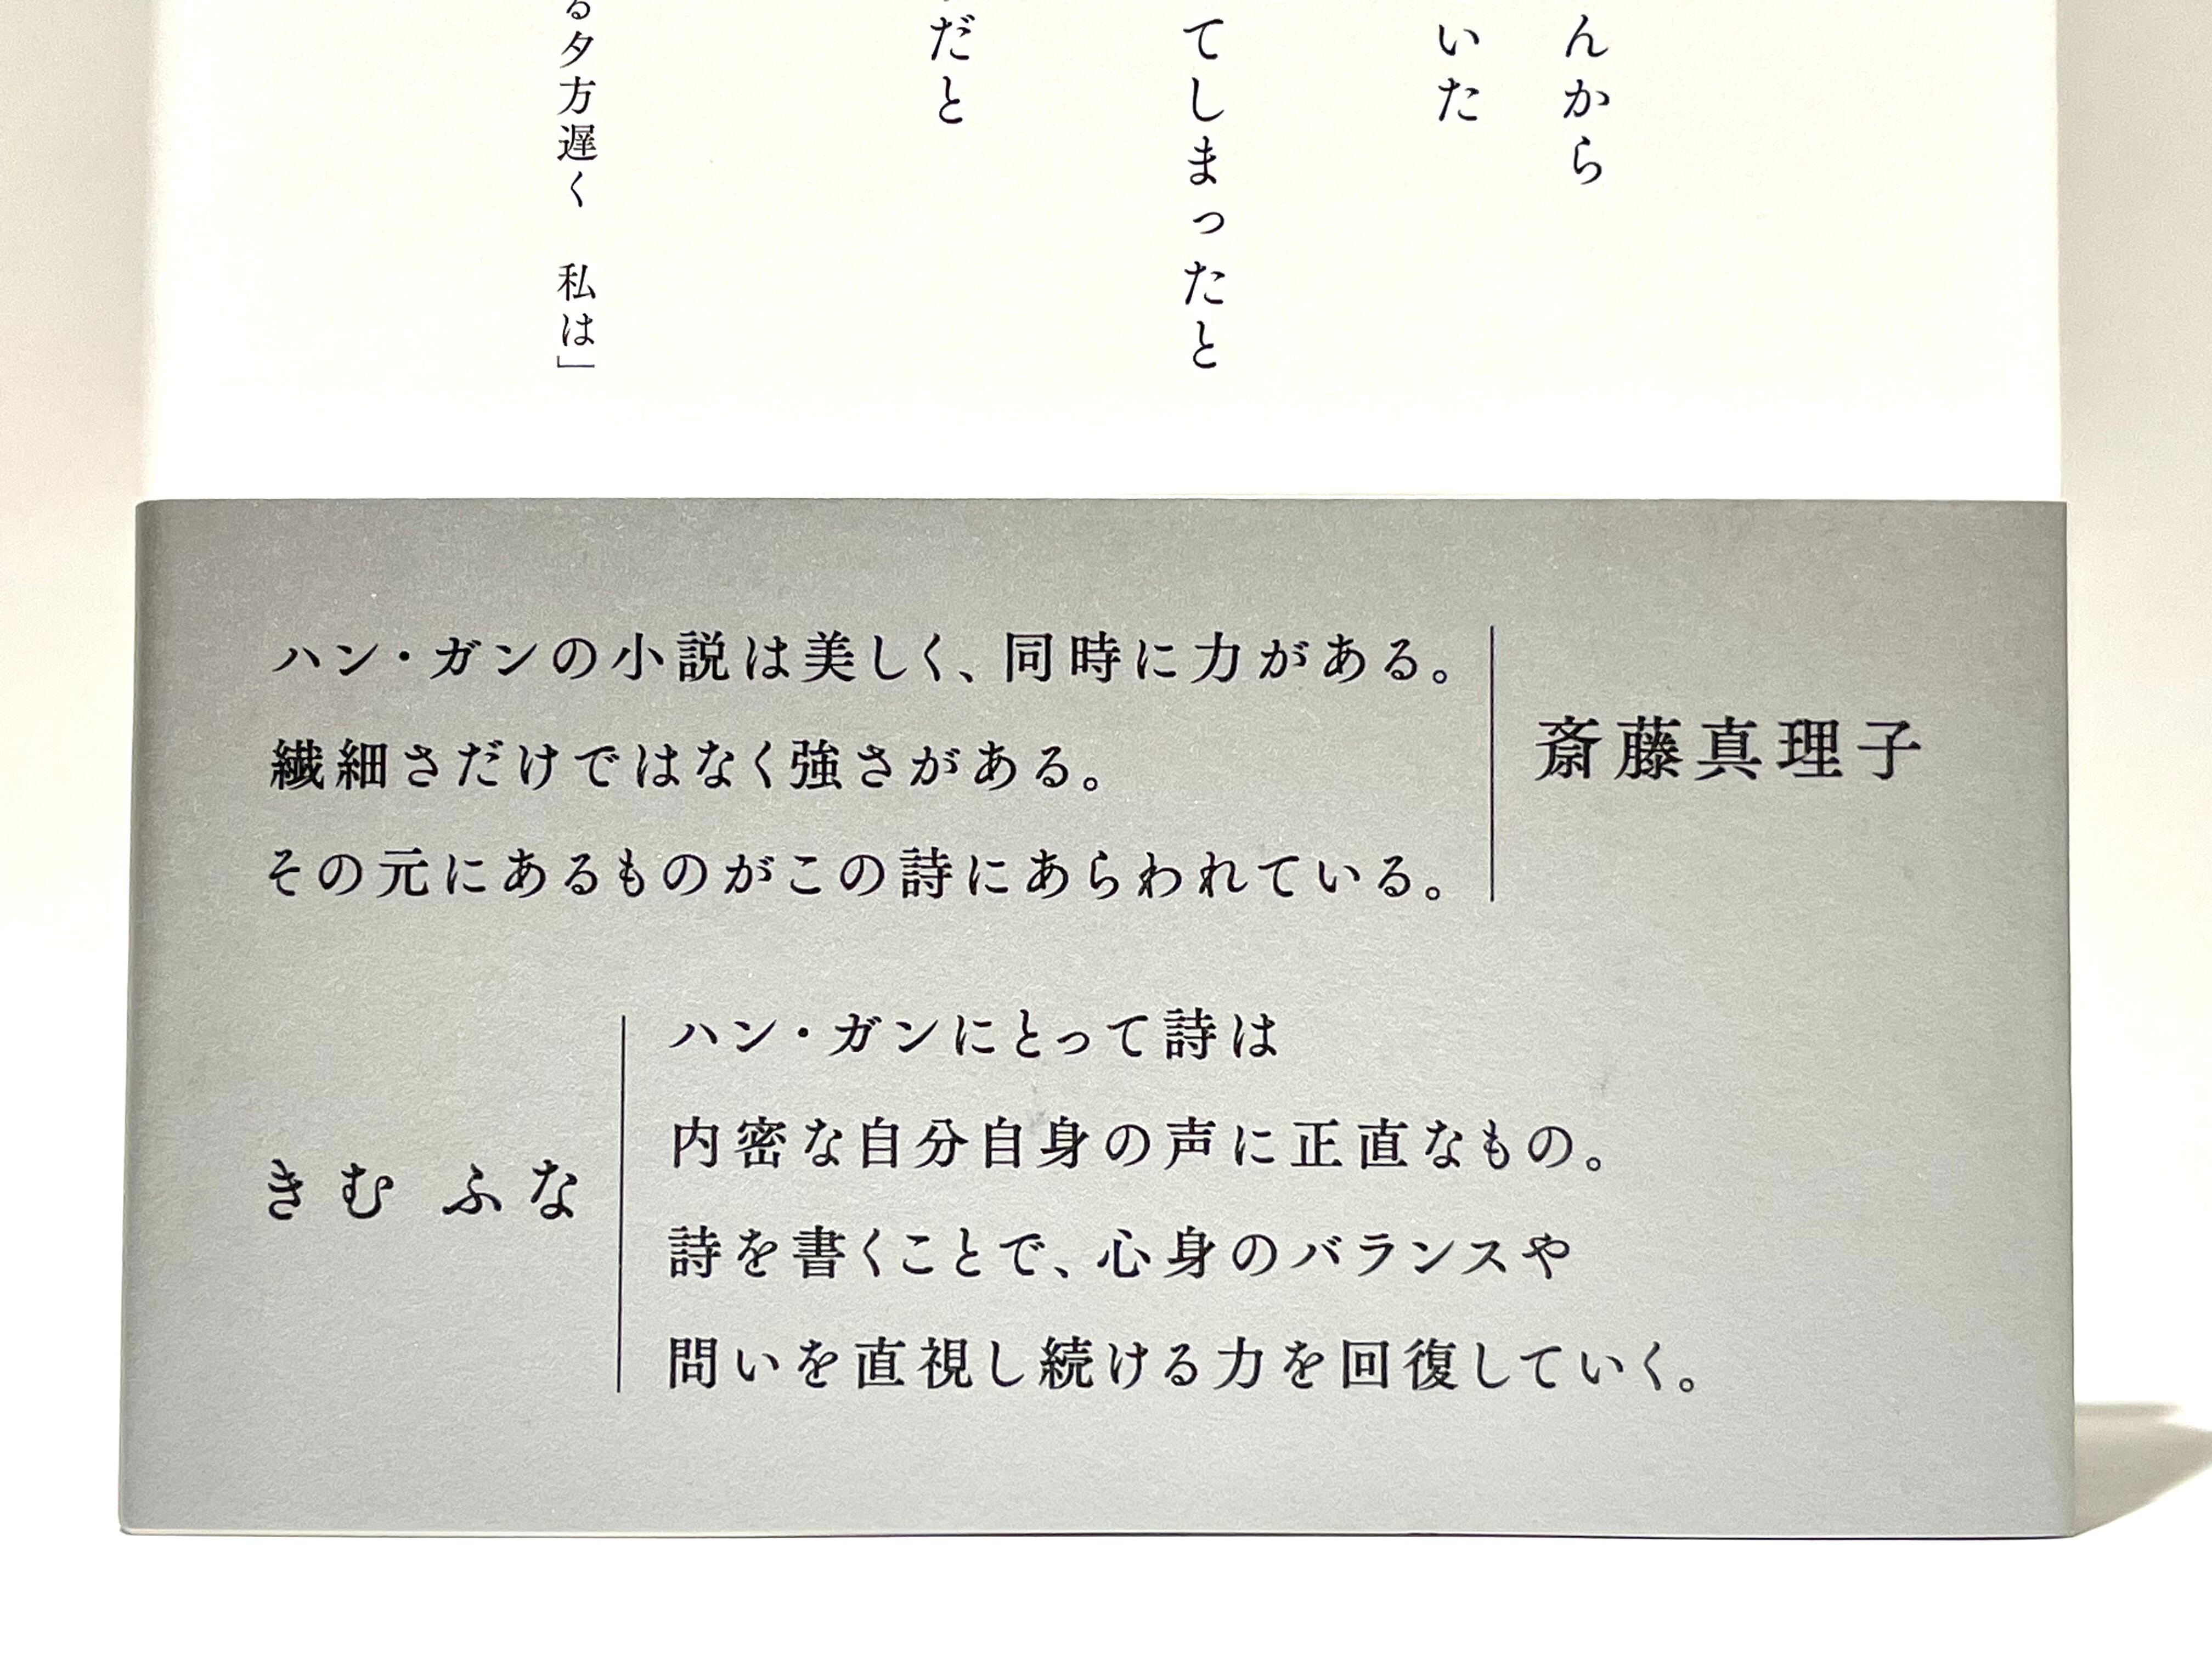 んから
いた
てしまったと
だと
る夕方遅く 私は」
ハン・ガンの小説は美しく、同時に力がある。
繊細さだけではなく強さがある。
その元にあるものがこの詩にあらわれている。
斎藤真理子
きむ ふな
ハン・ガンにとって詩は
内密な自分自身の声に正直なもの。
詩を書くことで、心身のバランスや
問いを直視し続ける力を回復していく。